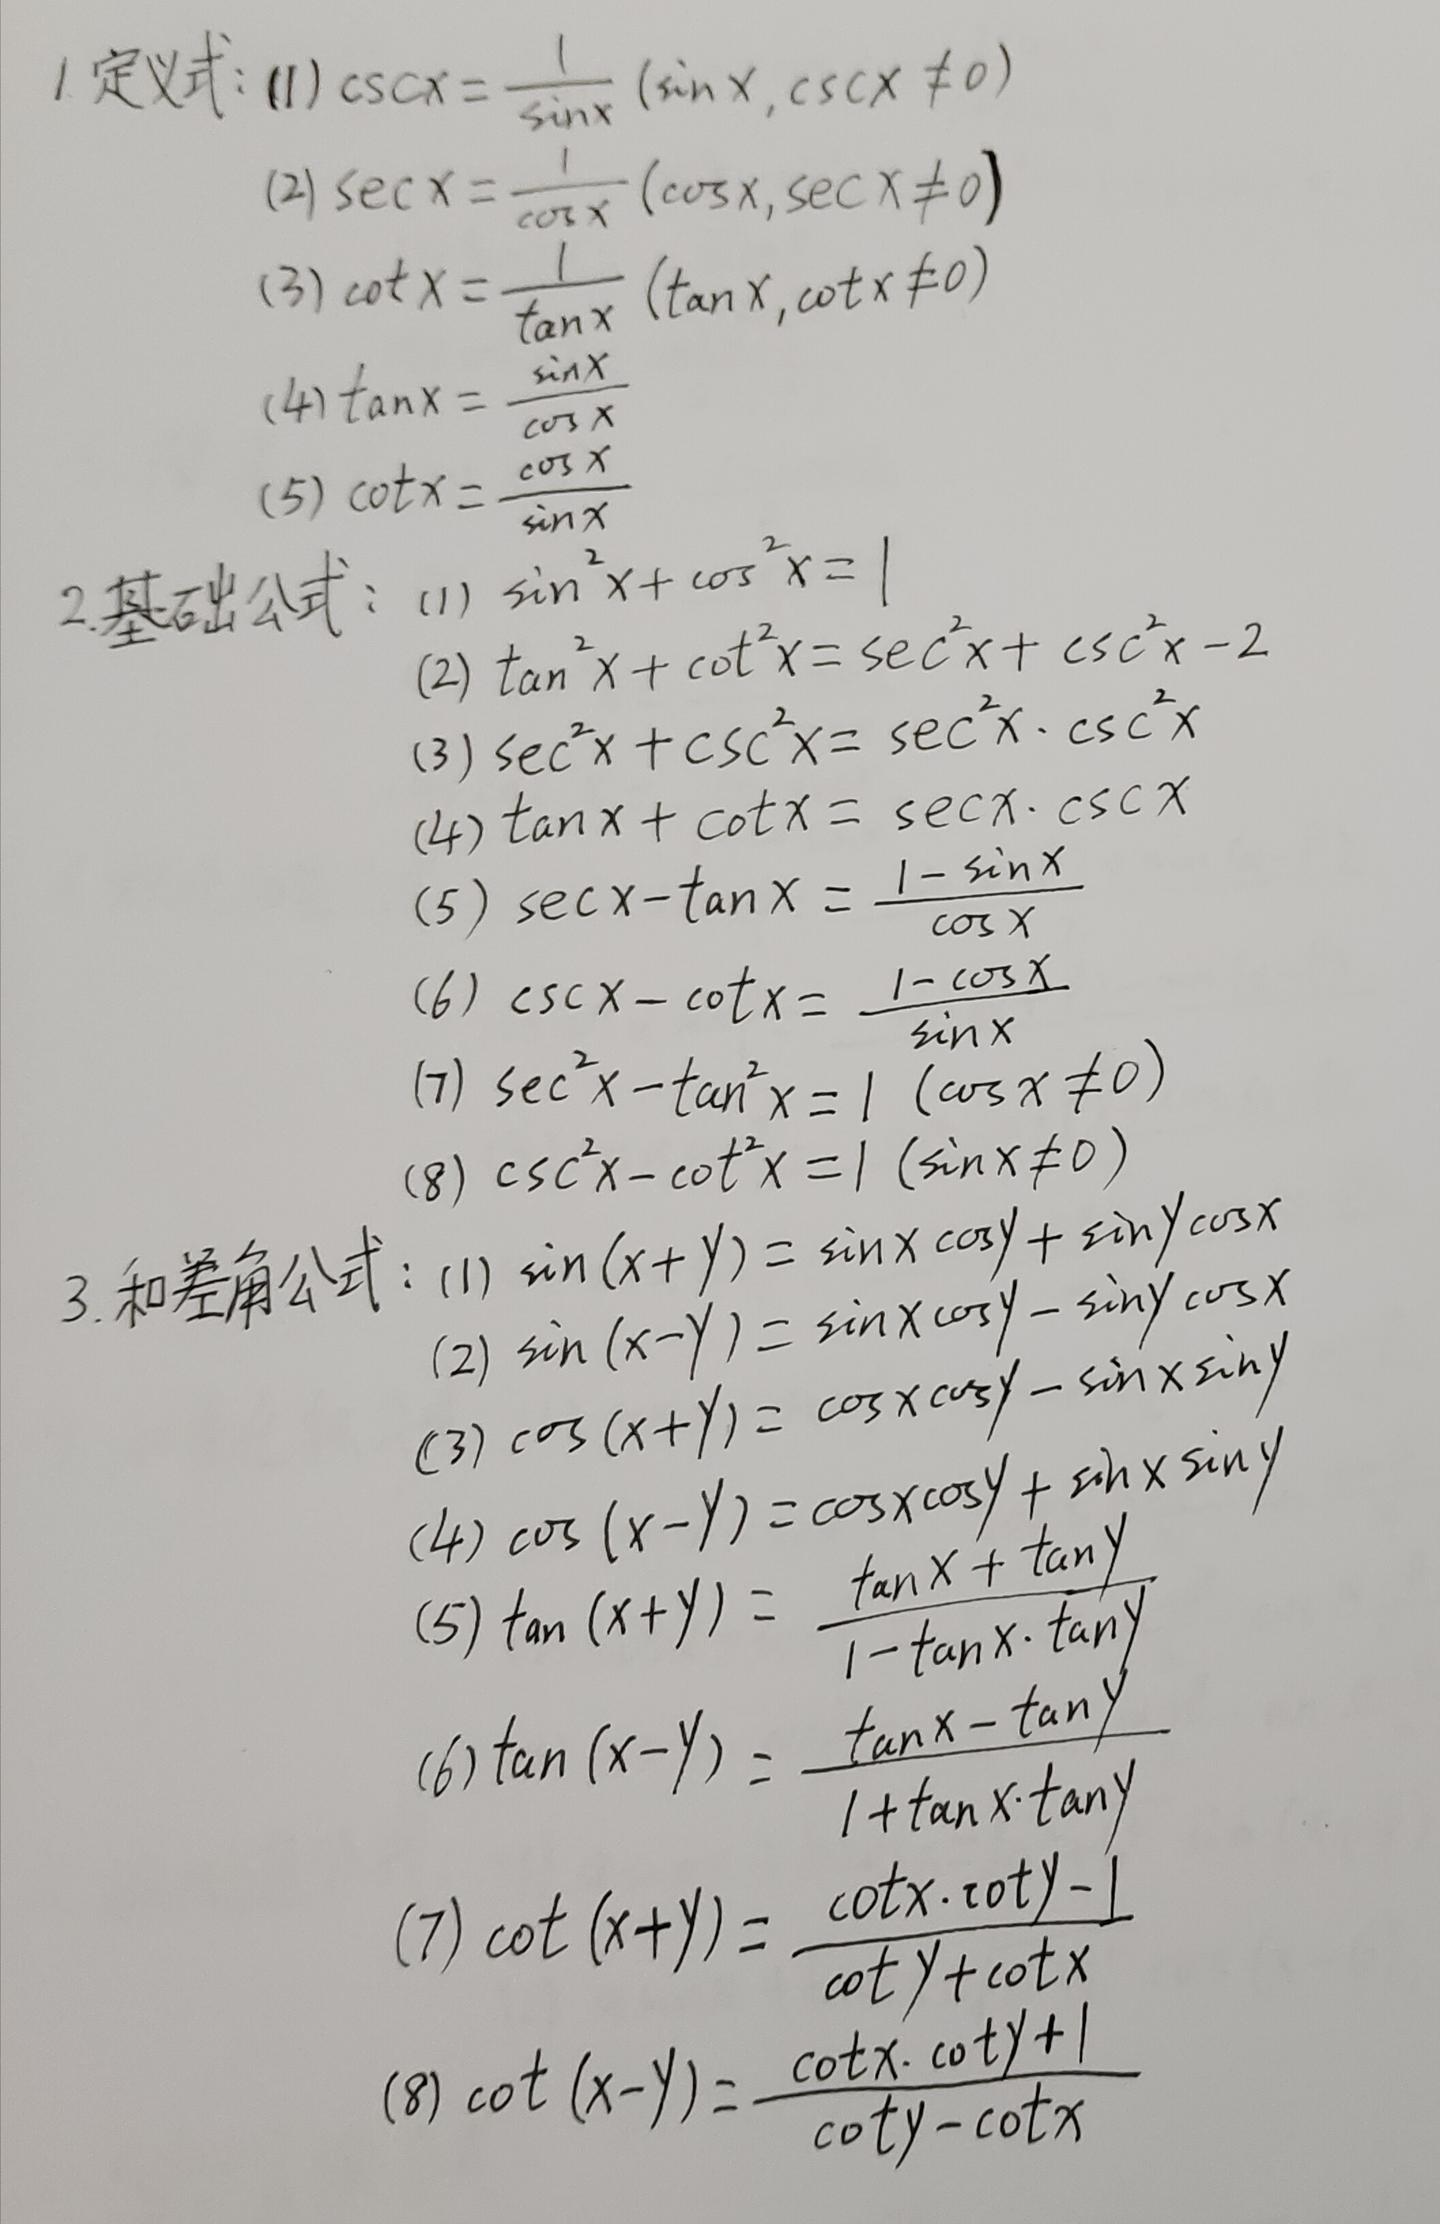 1.定义式：(1) cscx = 1/sinx (sinx, cscx ≠ 0)
(2) secx = 1/cosx (cosx, secx ≠ 0)
(3) cotx = 1/tanx (tanx, cotx ≠ 0)
(4) tanx = sinx/cosx
(5) cotx = cosx/sinx
2.基础公式：(1) sin²x + cos²x = 1
(2) tan²x + cot²x = sec²x + csc²x - 2
(3) sec²x + csc²x = sec²x · csc²x
(4) tanx + cotx = secx · cscx
(5) secx - tanx = (1 - sinx)/cosx
(6) cscx - cotx = (1 - cosx)/sinx
(7) sec²x - tan²x = 1 (cosx ≠ 0)
(8) csc²x - cot²x = 1 (sinx ≠ 0)
3.和差角公式：(1) sin(x+y) = sinxcosy + sinycosx
(2) sin(x-y) = sinxcosy - sinycosx
(3) cos(x+y) = cosxcosy - sinxsiny
(4) cos(x-y) = cosxcosy + sinxsiny
(5) tan(x+y) = (tanx + tany)/(1 - tanx · tany)
(6) tan(x-y) = (tanx - tany)/(1 + tanx · tany)
(7) cot(x+y) = (cotx · coty - 1)/(coty + cotx)
(8) cot(x-y) = (cotx · coty + 1)/(coty - cotx)